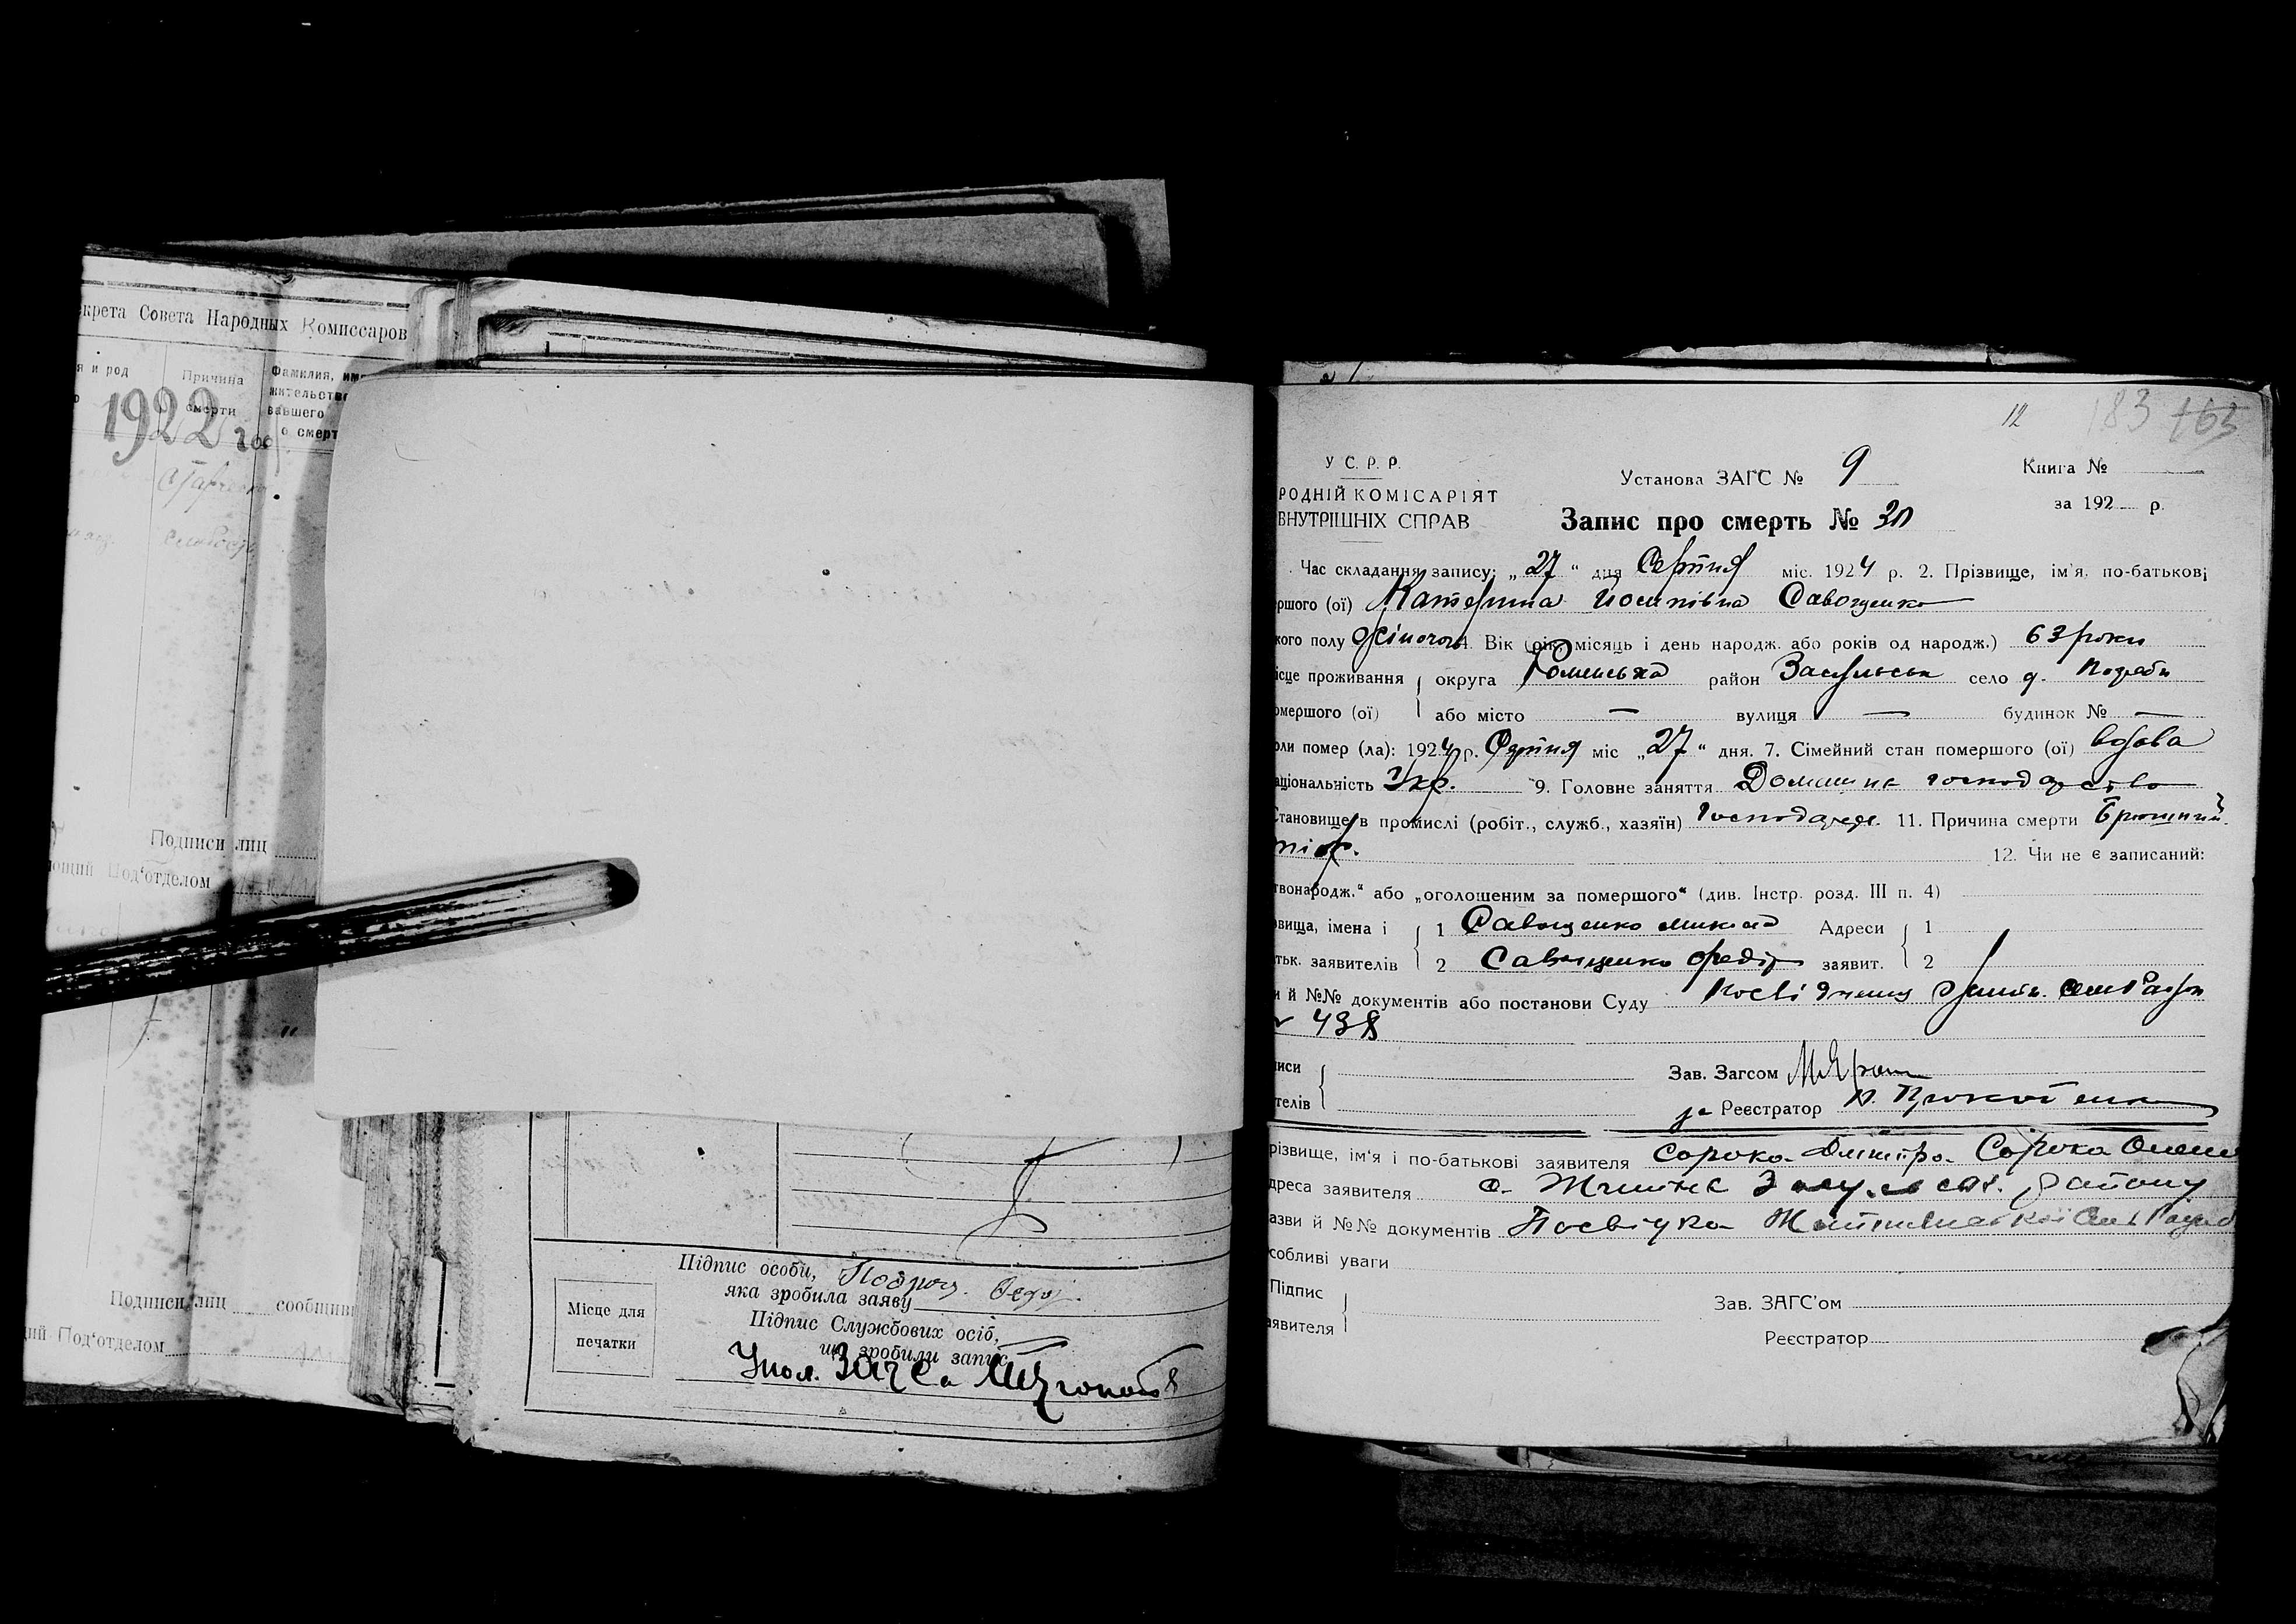 крета Совета Народных Комиссаров
я и род
Причина
смерти
Фамилия, им
жительство
вавшего
о смерт
1922 го
Подписи лиц
ющий Под‘отделом
Подписи лиц сообщив
ий Под‘отделом
Місце для
печатки
Підпис особи,
яка зробила заяву
Підпис Службових осіб,
що зробили запис
Упол. Загса
12 183 163
У С. Р. Р.
РОДНІЙ КОМІСАРІЯТ
ВНУТРІШНІХ СПРАВ
Установа ЗАГС № 9
Книга №
за 192 р.
Запис про смерть № 30
Час складання запису: „27“ дня Серпня міс. 1924 р. 2. Прізвище, ім'я, по-батькові
ршого (ої) Катерина Йосипівна Савощенко
кого полу жіночого 4. Вік (рік, місяць і день народж. або років од народж.) 63 роки
ісце проживання округа Роменська район Засульськ село д.
омершого (ої) або місто — вулиця — будинок № —
оли помер (ла): 1924 р. Серпня міс „27“ дня. 7. Сімейний стан помершого (ої) вдова
аціональність Укр. 9. Головне заняття Домашнє господарство
Становище в промислі (робіт., служб., хазяїн) 11. Причина смерти Брюшний
тіф. 12. Чи не є записаний:
твонародж.“ або „оголошеним за помершого“ (див. Інстр. розд. III п. 4)
звища, імена і 1 Савощенко Адреси 1
тьк. заявителів 2 Савощенко Федір заявит. 2
и й №№ документів або постанови Суду
438
писи
телів
Зав. Загсом
за Реєстратор
різвище, ім‘я і по-батькові заявителя Сорока Дмитро Сорока
дреса заявителя с. району
азви й №№ документів Посвідка
собливі уваги
Підпис
аявителя
Зав. ЗАГС’ом
Реєстратор